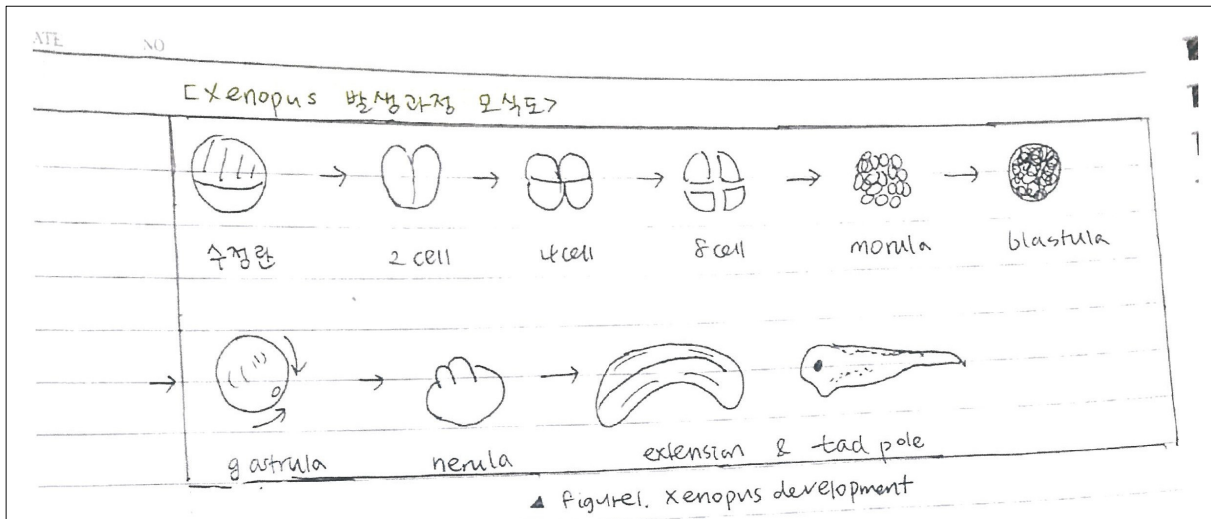 ATE NO
[Xenopus 발생과정 모식도>
수정란 2 cell 4cell 8cell morula blastula
gastrula nerula extension & tad pole
▲ Figure1. Xenopus development